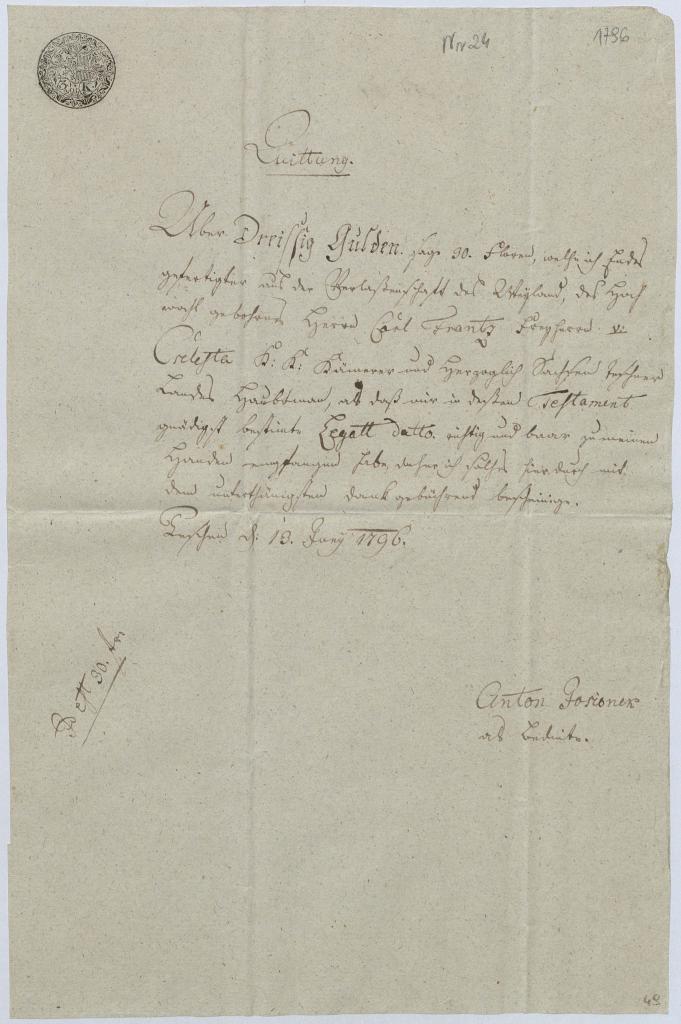 Nr 24
1796
3 K
Quittung.
Über Dreissig Gulden. sage 30. Floren, welche ich Endes
gefertigter aus der Verlaßenschaft des Weyland, des Hoch
wohl gebohrnen Herrn Carl Frantz Freyherrn v:
Celesta K: K: Kämerer und Herzoglich Sachsen Teschner
Landes Haubtman, als daß mir in deßen Testament
gnädigst bestimte Legatt datto. richtig und baar zu meinen
Handen empfangen habe, daher ich solches hierdurch mit
dem unterthänigsten dank gebührend bescheinige.
Teschen d: 13. Juny 1796.
30.
Anton Josionek
als Bedinte.
49